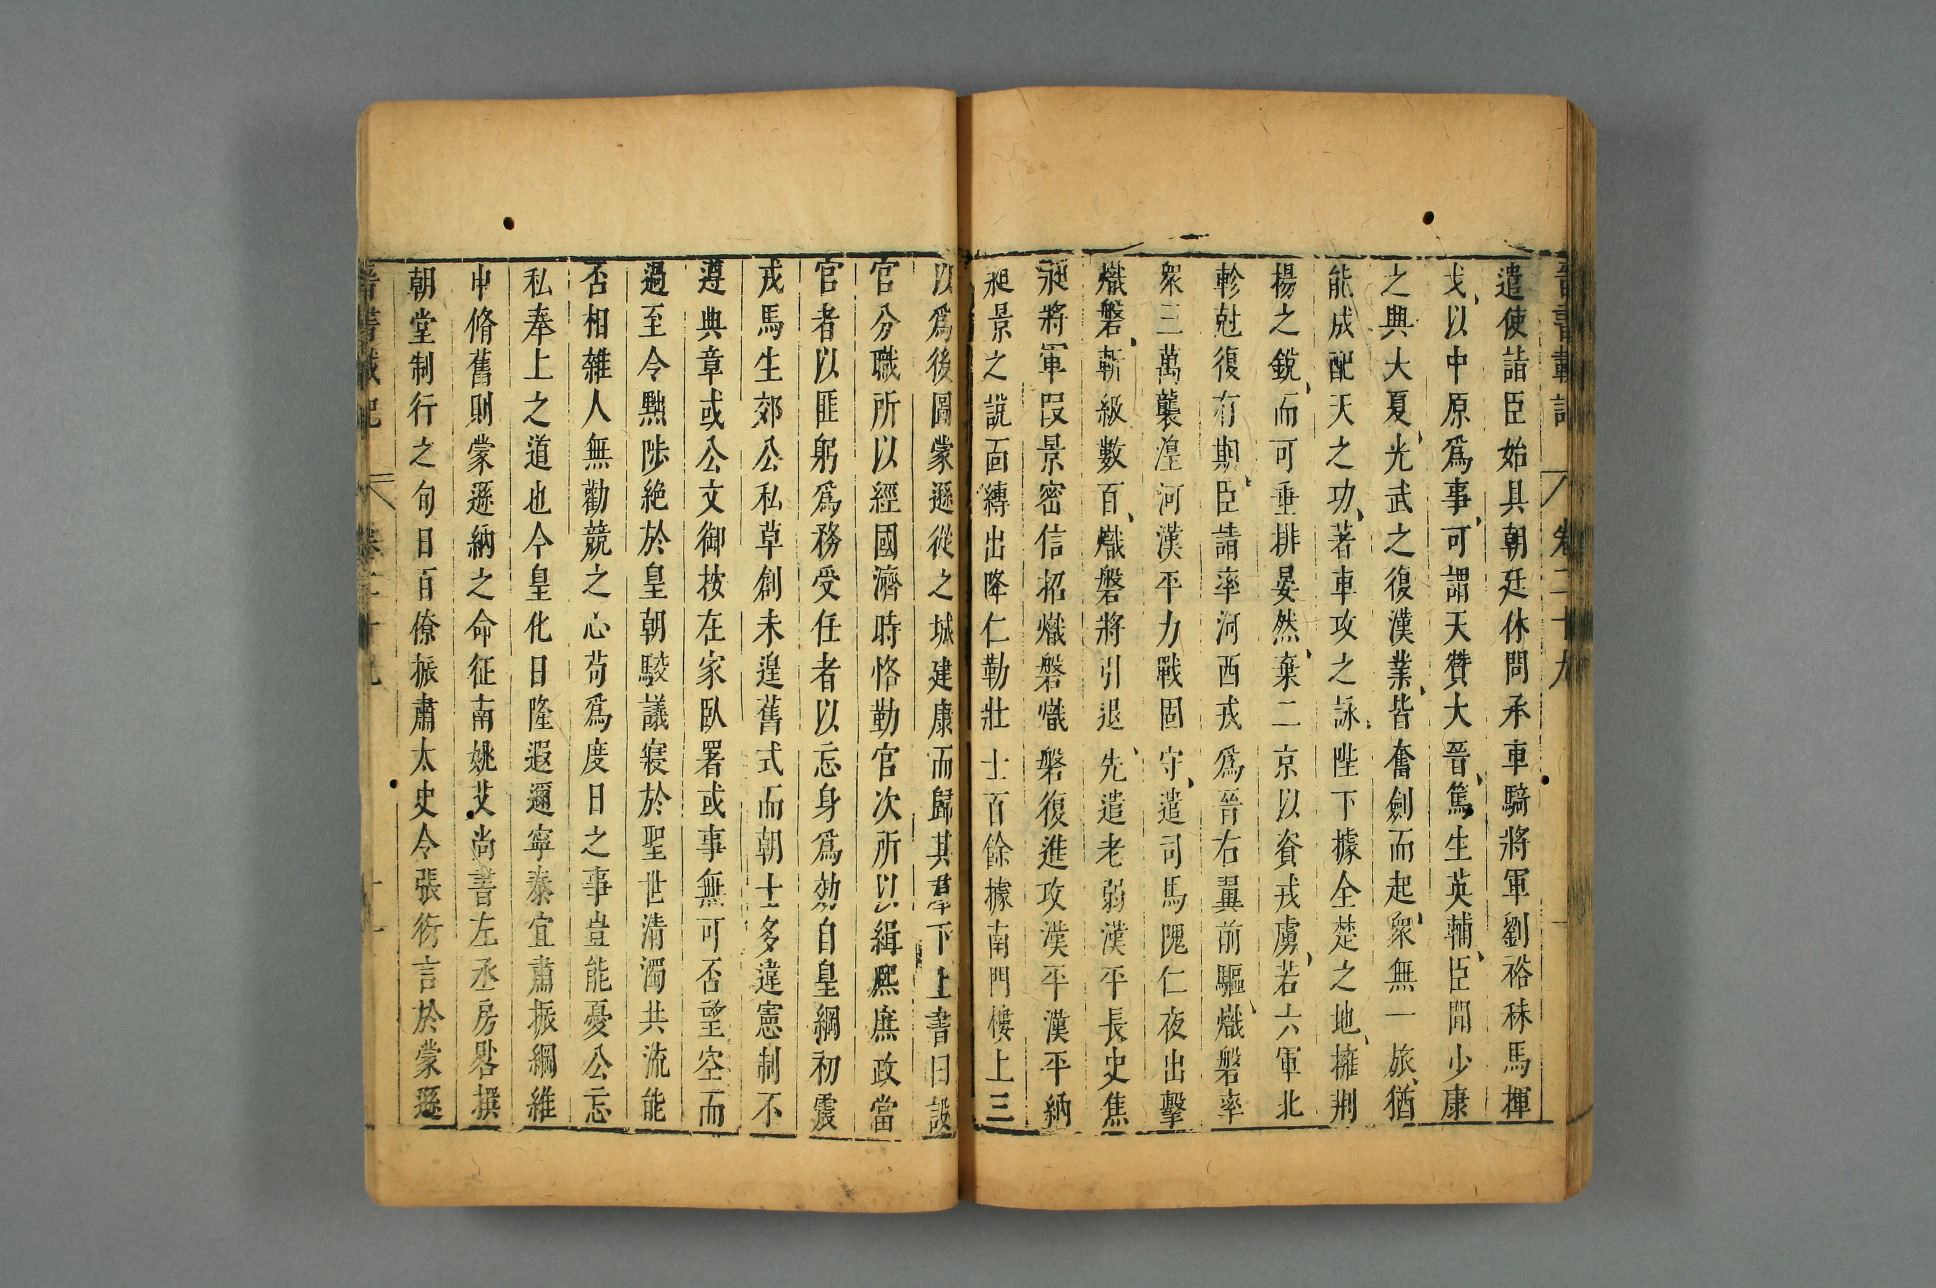 晉書載記 卷二十九
遣使詣臣始具朝廷休問承車騎將軍劉裕秣馬揮
戈以中原爲事可謂天贊大晉篤生英輔臣聞少康
之興大夏光武之復漢業皆奮劍而起衆無一旅猶
能成配天之功著車攻之詠陛下據全楚之地擁荆
楊之銳而可垂拱晏然棄二京以資戎虜若六軍北
軫尅復有期臣請率河西戎爲晉右翼前驅熾磐率
衆三萬襲湟河漢平力戰固守遣司馬隗仁夜出擊
熾磐斬級數百熾磐將引退先遣老弱漢平長史焦
昶將軍叚景密信招熾磐熾磐復進攻漢平漢平納
昶景之說面縛出降仁勒壯士百餘據南門樓上三
以爲後圖蒙遜從之城建康而歸其羣下上書曰設
官分職所以經國濟時恪勤官次所以緝熙庶政當
官者以匪躬爲務受任者以忘身爲効自皇綱初震
戎馬生郊公私草創未遑舊式而朝士多違憲制不
遵典章或公文御按在家臥署或事無可否望空而
過至令黜陟絶於皇朝駮議寢於聖世清濁共流能
否相雜人無勸競之心苟爲度日之事豈能憂公忘
私奉上之道也今皇化日隆遐邇寧泰宜肅振綱維
申脩舊則蒙遜納之命征南姚艾尚書左丞房晷撰
朝堂制行之旬日百僚振肅太史令張衍言於蒙遜
晉書載記 卷二十九 十一